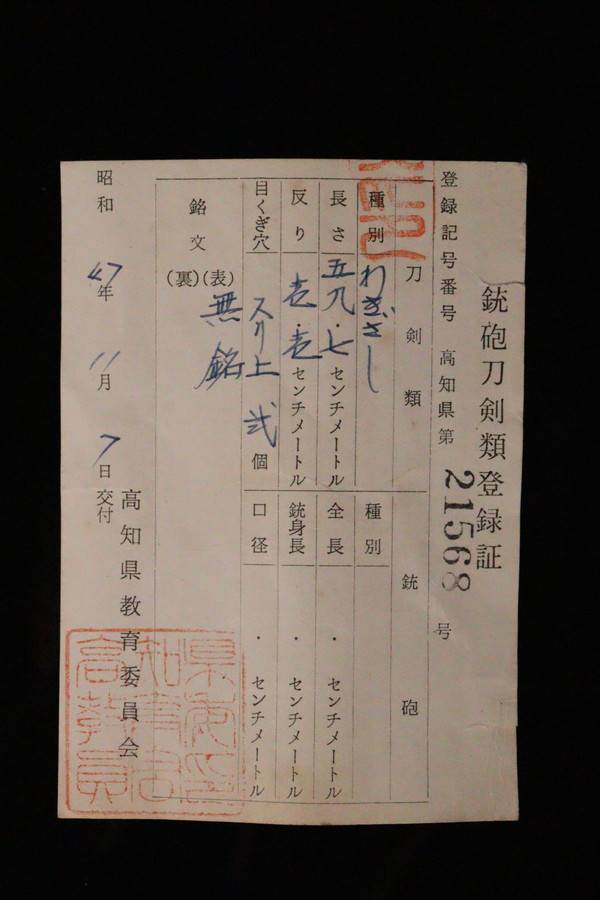 銃砲刀剣類登録証
登録記号番号 高知県第 21568 号
刀剣類
種別 わきざし
長さ 五九・七 センチメートル
反り 壱・壱 センチメートル
目くぎ穴 スリ上 弐 個
銘文 (表) 無銘
(裏)
銃砲
種別
全長 ・ センチメートル
銃身長 ・ センチメートル
口径 ・ センチメートル
昭和 47年 11月 7日 交付
高知県教育委員会